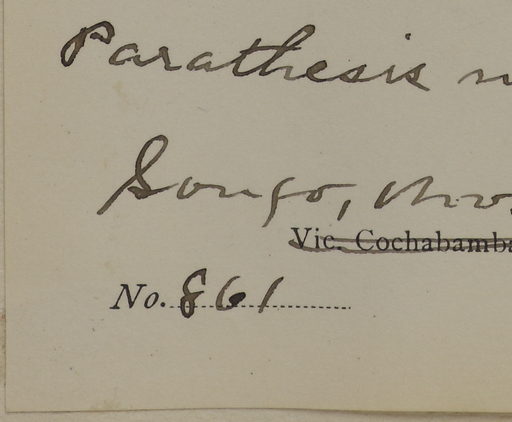 Parathesis
Songo, Nov.
Vic. Cochabamba
No. 861